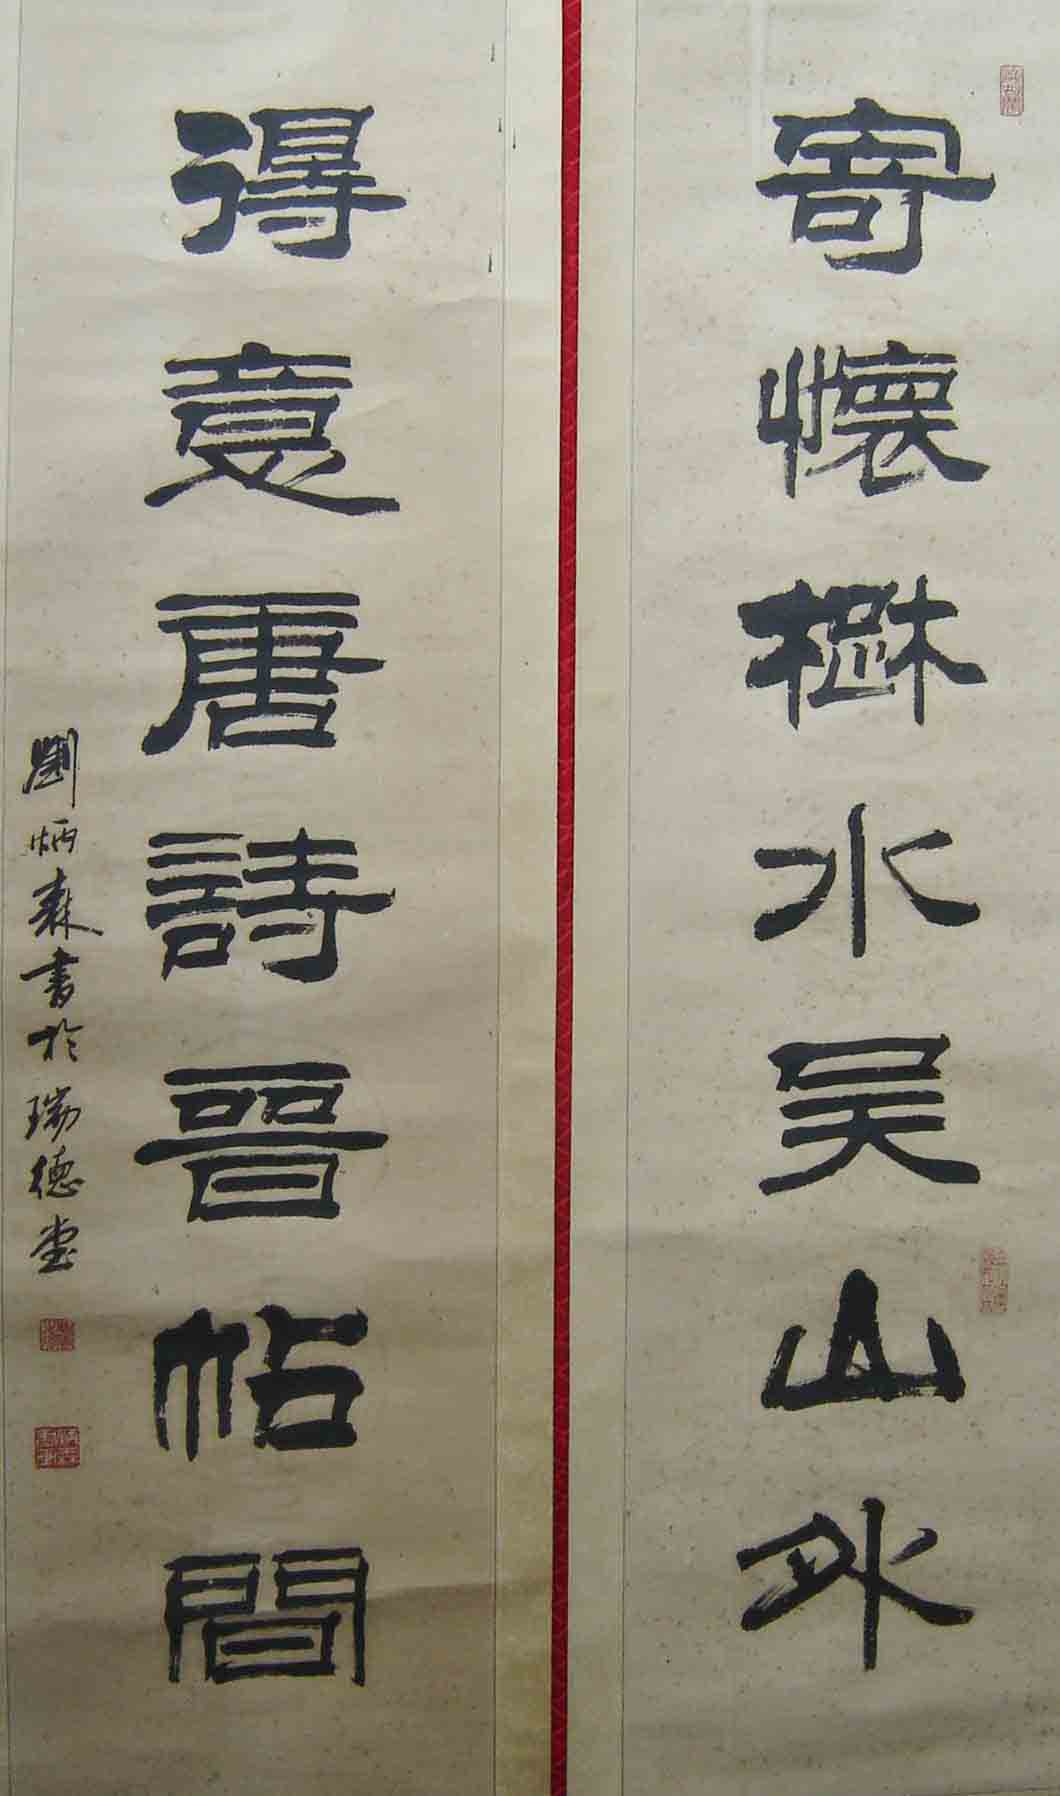 寄懷楚水吳山外
得意唐詩晉帖間
劉炳森書於瑞德堂